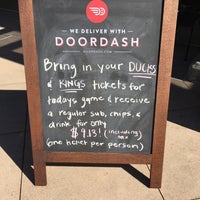 WE DELIVER WITH
DOORDASH
Bring in your DUCKS
& KINGS tickets for
todays game & receive
a regular sub, chips, &
drink for only
$9.13! (including tax
(one ticket per person)